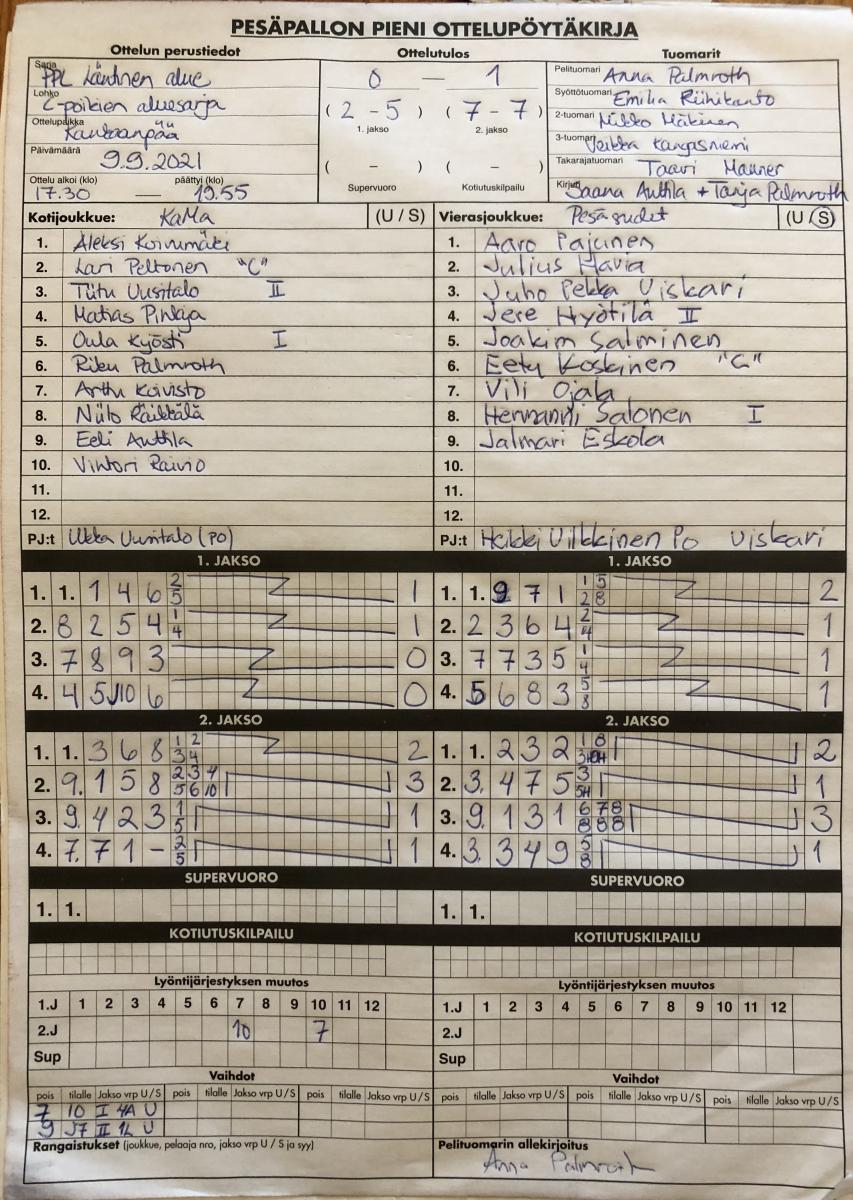 PESÄPALLON PIENI OTTELUPÖYTÄKIRJA
Ottelun perustiedot
Sarja PPL Läntinen alue
Lohko C-poikien aluesarja
Ottelupaikka Kankaanpää
Päivämäärä 9.9.2021
Ottelu alkoi (klo) päättyi (klo)
17.30 — 19.55
Ottelutulos
0 — 1
( 2 - 5 ) ( 7 - 7 )
1. jakso 2. jakso
( - ) ( - )
Supervuoro Kotiutuskilpailu
Tuomarit
Pelituomari Anna Palmroth
Syöttötuomari Emilia Riihikanto
2-tuomari Mikko Mäkinen
3-tuomari Veikka Kangasniemi
Takarajatuomari Taavi Manner
Kirjuri Saana Anttila + Tanja Palmroth
Kotijoukkue: KaMa (U / S)
1. Aleksi Koivumäki
2. Lari Peltonen "C"
3. Tiitu Uusitalo II
4. Matias
5. Oula Kyösti I
6. Riku Palmroth
7. Arttu Koivisto
8. Niilo
9. Eeli Anttila
10. Vintori Raivio
11.
12.
PJ:t Uusitalo (PO)
Vierasjoukkue: Pesäsudet (U / S)
1. Aaro Pajunen
2. Julius Havia
3. Juho Pekka Viskari
4. Jere Hyötilä II
5. Joakim Salminen
6. Eetu Koskinen "C"
7. Vili Ojala
8. Hermanni Salonen I
9. Jalmari Eskola
10.
11.
12.
PJ:t Heikki Vilkkinen Po Viskari
1. JAKSO
1. 1. 1 4 6 2 5 1
2. 8 2 5 4 1 4 1
3. 7 8 9 3 0
4. 4 5 J10 6 0
1. JAKSO
1. 1. 9 7 1 1 5 2 8 2
2. 2 3 6 4 2 4 1
3. 7 7 3 5 1 4 1
4. 5 6 8 3 5 8 1
2. JAKSO
1. 1. 3 6 8 1 2 3 4 2
2. 9. 1 5 8 2 3 4 5 6 10 3
3. 9. 4 2 3 1 5 1
4. 7. 7 1 - 2 5 1
2. JAKSO
1. 1. 2 3 2 1 8 2
2. 3. 4 7 5 3 5H 1
3. 9. 1 3 1 6 7 8 8 8 8 3
4. 3. 3 4 9 5 8 1
SUPERVUORO
1. 1.
SUPERVUORO
1. 1.
KOTIUTUSKILPAILU
KOTIUTUSKILPAILU
Lyöntijärjestyksen muutos
1.J 1 2 3 4 5 6 7 8 9 10 11 12
2.J 10 7
Sup
Lyöntijärjestyksen muutos
1.J 1 2 3 4 5 6 7 8 9 10 11 12
2.J
Sup
Vaihdot
pois tilalle Jakso vrp U / S pois tilalle Jakso vrp U / S pois tilalle Jakso vrp U / S
7 10 I 4A U
9 J7 II 1L U
Vaihdot
pois tilalle Jakso vrp U / S pois tilalle Jakso vrp U / S pois tilalle Jakso vrp U / S
Rangaistukset (joukkue, pelaaja nro, jakso vrp U / S ja syy)
Pelituomarin allekirjoitus
Anna Palmroth